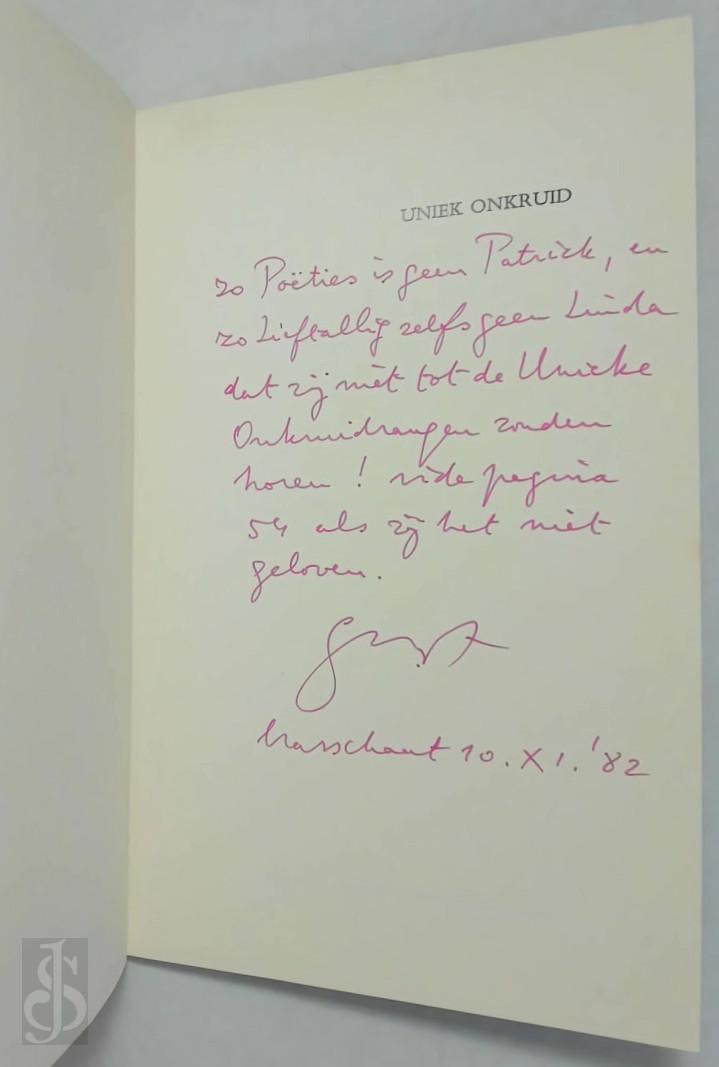 UNIEK ONKRUID
zo Poëties is geen Patrick, en
zo Lieftallig zelfs geen Linda
dat zij niet tot de Unieke
Onkruidrangen zouden
horen! vide pagina
54 als zij het niet
geloven.
Brasschaat 10.XI.'82
JS